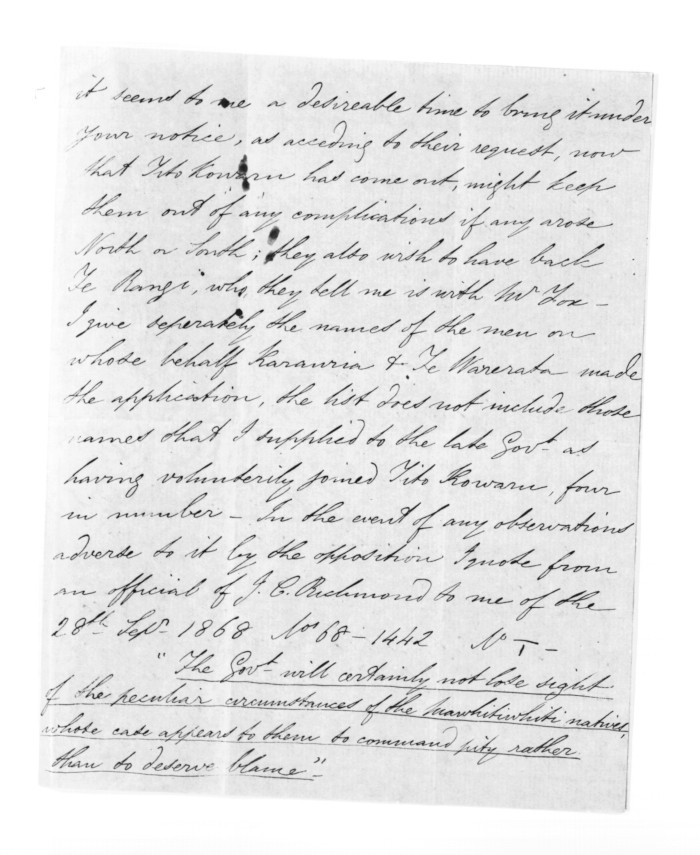 it seems to me a desireable time to bring it under
your notice, as acceding to their request, now
that Tito Kowaru has come out, might keep
them out of any complications if any arose
North or South; they also wish to have back
Te Rangi, who, they tell me is with Mr Fox –
I give seperately the names of the men on
whose behalf Karauria & Te Warerata made
the application, the list does not include those
names that I supplied to the late Govt. as
having volunterily joined Tito Kowaru, four
in number – In the event of any observations
adverse to it by the opposition I quote from
an official of J. C. Richmond to me of the
28th Sepr. 1868 Nos 68–1442 No I –
"The Govt. will certainly not lose sight
of the peculiar circumstances of the Mawhitiwhiti natives,
whose case appears to them to command pity rather
than to deserve blame" –